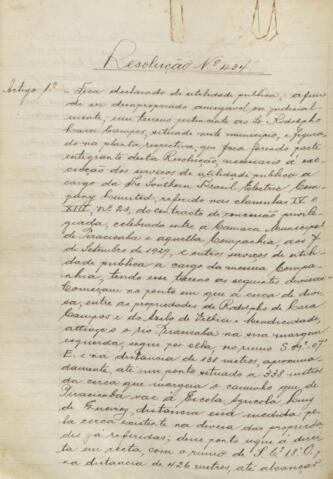 Resolução Nº 234
Artigo 1º - Fica declarado de utilidade publica, afim
de ser desapropriado amigavel ou judicial-
mente, um terreno pertencente ao Sr. Rodolpho
Lara Campos, situado neste municipio, e figura-
do na planta respectiva, que fica fazendo parte
integrante desta Resolução, necessario á exe-
cução dos serviços de utilidade publica a
cargo da The Southern Brazil Electric Com-
pany Limited, referido nas clausulas IV e
XIII, nº 23, do contracto de concessão privile-
giada, celebrado entre a Camara Municipal
de Piracicaba e aquella Companhia, aos 7
de Setembro de 1929, e outros serviços de utili-
dade publica a cargo da mesma Compa-
nhia, tendo esse terreno as seguintes divisas:
Começam no ponto em que a cerca de divi-
sa, entre as propriedades de Rodolpho de Lara
Campos e do Asilo de Velhice e Mendicidade,
attinge o rio Piracicaba na sua margem
esquerda, segue por ella, no rumo S. 49º 07'
E. e na distancia de 131 metros, aproxima-
damente até um ponto situado a 338 metros
da cerca que margeia o caminho que de
Piracicaba vae á Escola Agricola Luiz
de Queiroz, distancia essa medida pela
cerca existente na divisa das proprieda-
des já referidas; deste ponto segue á direi-
ta em recta, com o rumo de S. 6º 18' O,
na distancia de 426 metros, até alcançar